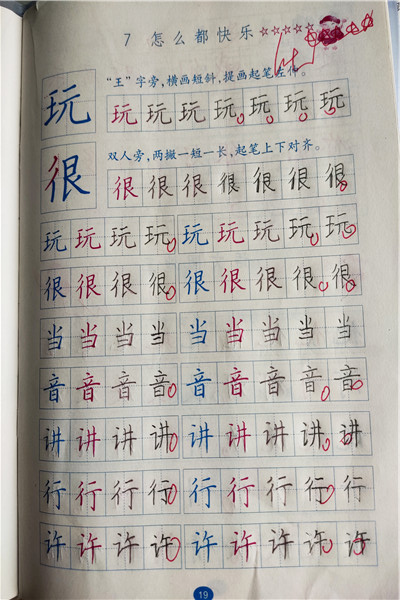 7 怎么都快乐
玩 “王”字旁，横画短斜，提画起笔左伸。
玩 玩 玩 玩 玩 玩 玩
很 双人旁，两撇一短一长，起笔上下对齐。
很 很 很 很 很 很 很
玩 玩 玩 玩 玩 玩 玩 玩 玩
很 很 很 很 很 很 很 很 很
当 当 当 当 当 当 当 当 当
音 音 音 音 音 音 音 音 音
讲 讲 讲 讲 讲 讲 讲 讲 讲
行 行 行 行 行 行 行 行 行
许 许 许 许 许 许 许 许 许
19